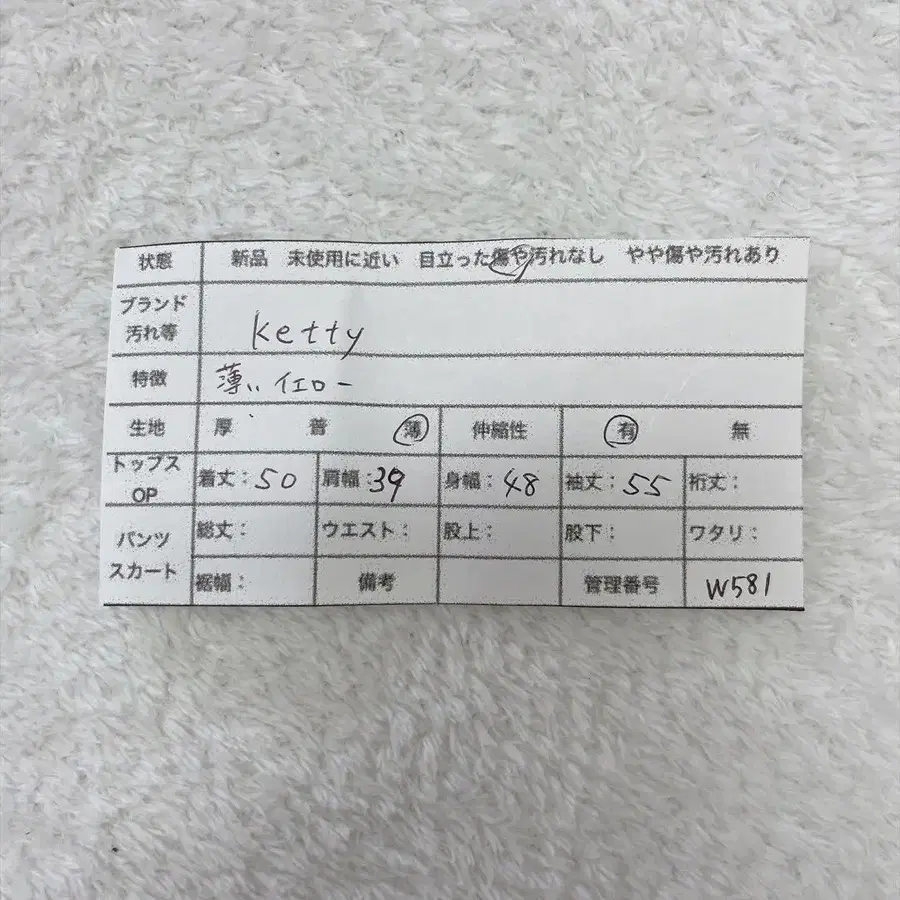 状態 新品 未使用に近い 目立った傷や汚れなし やや傷や汚れあり
ブランド
汚れ等 ketty
特徴 薄い イエロー
生地 厚 普 薄 伸縮性 有 無
トップス
OP 着丈：50 肩幅：39 身幅：48 袖丈：55 裄丈：
パンツ
スカート 総丈： ウエスト： 股上： 股下： ワタリ：
裾幅： 備考 管理番号 W581